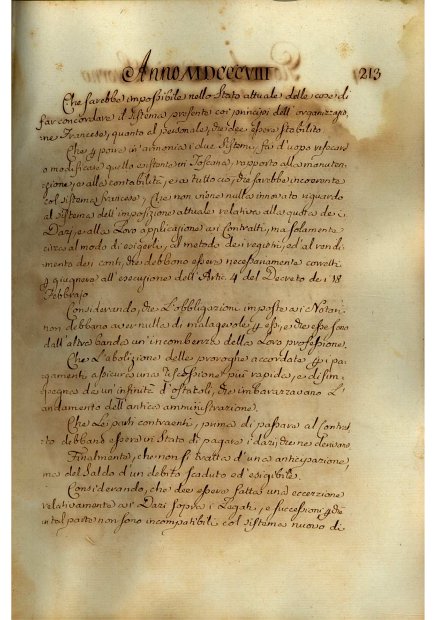 Anno MDCCCVIII 213
Che sarebbe impossibile nello Stato attuale delle cose di
far concordare il sistema presente coi principj dell' organizzazio,
ne Francese, quanto al personale, che dee essere stabilito
Che p porre in armonia i due Sistemi, fa d'uopo rifare
o modificare quello esistente in Toscana, rapporto alla manuten-
zione, o alla contabilità, e a tutto ciò, che sarebbe incoerente
col sistema francese; Che non viene nulla innovato riguardo
al sistema dell' imposizione attuale relativa alla quota dei
Dazi, e alla Loro applicazione ai Contratti, ma solamente
circa al modo di esigerli, al metodo dei registri, ed al rendi-
mento dei conti, che debbono essere necessariamente corretti
p giugnere all' esecuzione dell' Artic. 4 del Decreto dei 18
Febbrajo
Considerando, che L'obbligazioni imposte ai Notari
non debbano aver nulla di malagevole p essi, e che esse sono
dall' altra banda un' incombenza della Loro professione.
Che L'abolizione delle proroghe accordate p i pa-
gamenti assicura una riscossione più rapida, e disim-
pegna da un' infinità d'ostacoli, che imbarazzavano L'
andamento dell' antica amministrazione.
Che Le parti contraenti, prima di passare al Contrat-
to debbano essere in Stato di pagare i dazi, che ne derivano
Finalmente, che non si tratta d'una anticipazione,
ma del Saldo d'un debito scaduto ed esigibile.
Considerando, che dee essere fatta una eccezzione
relativamente ai Dazi sopra i Legati, e successioni, p che
in tal parte non sono incompatibili col sistema nuovo di